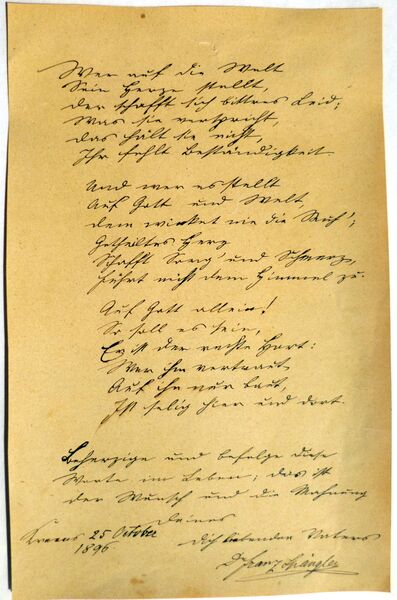 Wer auf die Welt
Sein Herze stellt,
der schafft sich bittres Leid;
Was sie verspricht,
das hält sie nicht,
Ihr fehlt Beständigkeit
Und wer es stellt
Auf Gott und Welt,
dem winket nie die Ruh';
Getheiltes Herz
Schafft Sorg' und Schmerz,
führt nicht dem Himmel zu.
Auf Gott allein!
So soll es sein,
Er ist der rechte Hort:
Wer ihm vertraut,
Auf ihn nur baut,
Ist selig hier und dort.
Beherzige und befolge diese
Worte im Leben; das ist
der Wunsch und die Mahnung
Deines
Dich liebenden Vaters
Krems 25 October
1896
Dr Franz Spängler